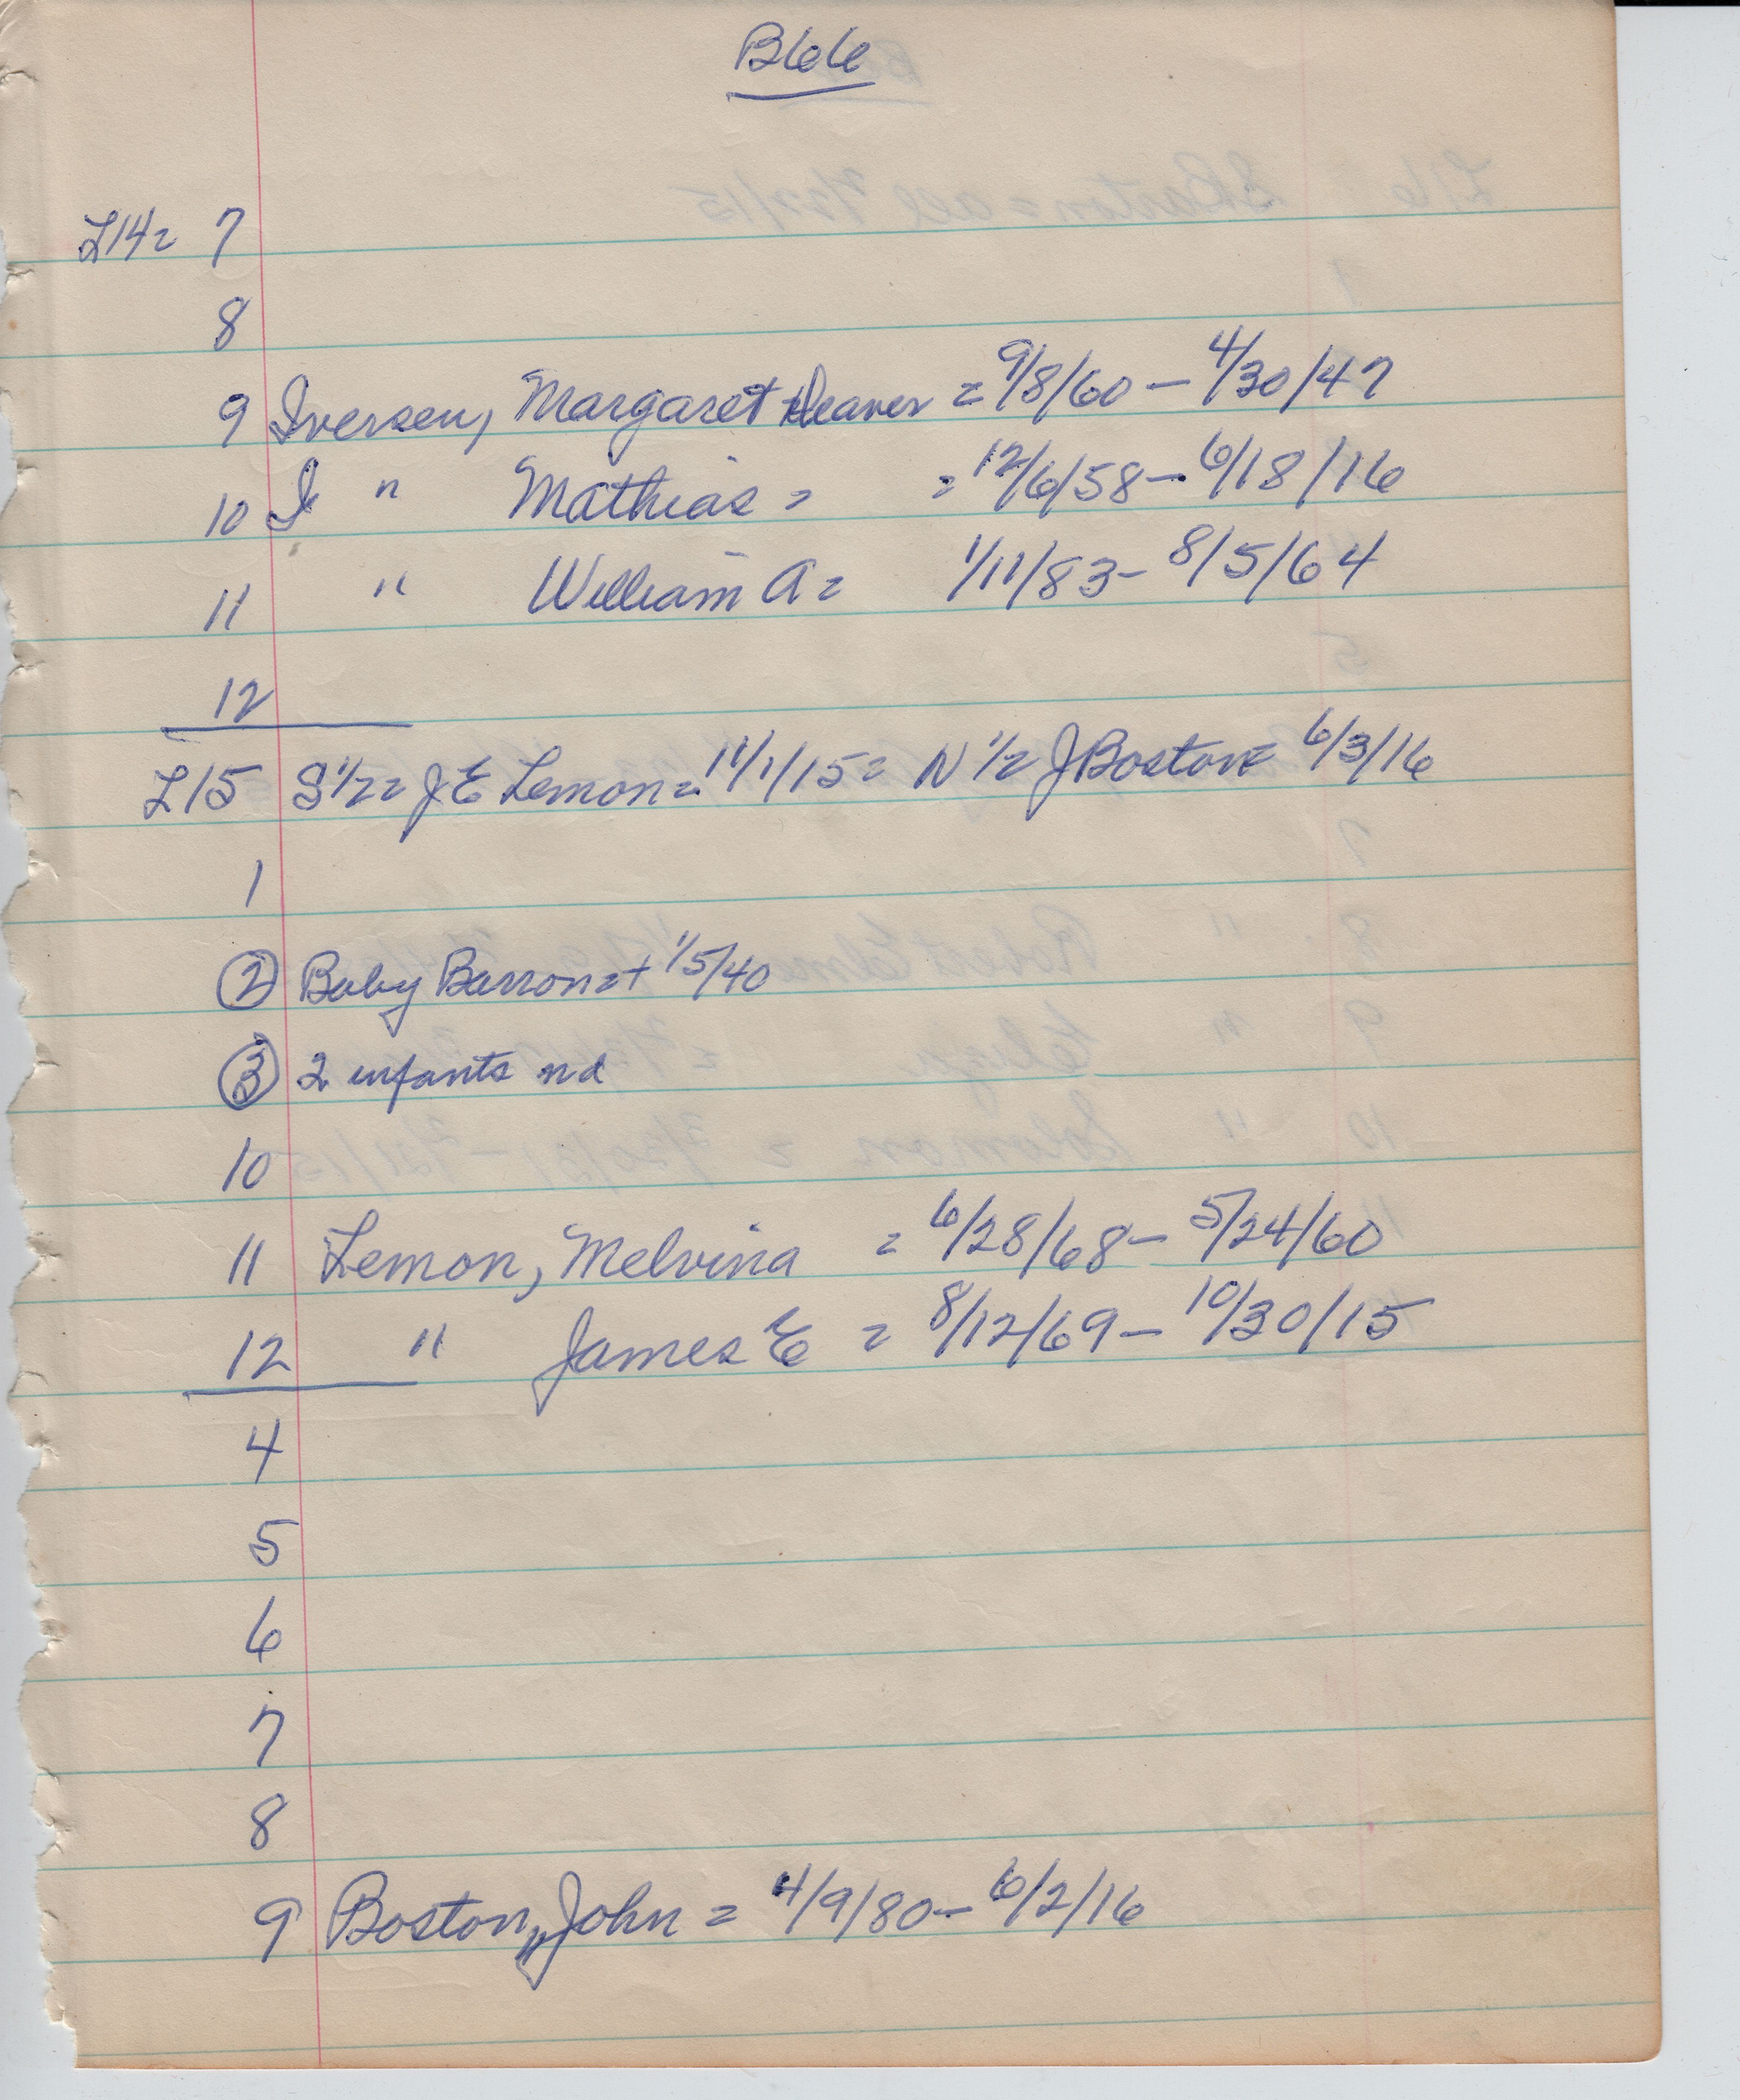 B66
L14= 7
8
9 Iversen, Margaret Deaver = 9/8/60 – 4/30/47
10 I " Mathias = = 12/6/58 – 6/18/16
11 " William A = 1/11/83 – 8/5/64
12
L15 S 1/2 = J E Lemon = 11/1/15 = N 1/2 J Boston = 6/3/16
1
② Baby Barron = + 1/5/40
③ 2 infants nd
10
11 Lemon, Melvina = 6/28/68 – 5/24/60
12 " James E = 8/12/69 – 10/30/15
4
5
6
7
8
9 Boston, John = 4/9/80 – 6/2/16